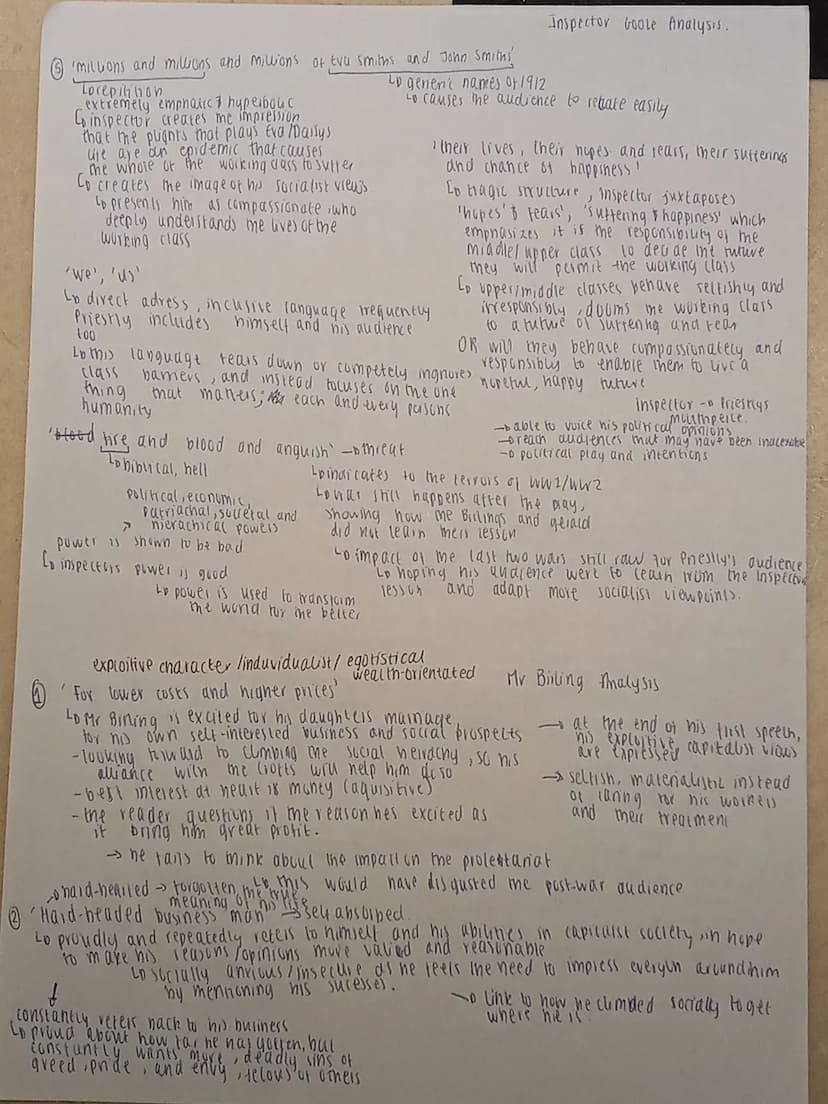 Inspector Goole Analysis.
⑤ 'millions and millions and millions of Eva Smiths and John Smiths'
↳ repitition
extremely emphatic & hyperbolic
↳ inspector creates the impression
that the plights that plays Eva/Daisys
life are an epidemic that causes
the whole of the working class to suffer
↳ creates the image of his socialist views
↳ presents him as compassionate, who
deeply understands the lives of the
working class
↳ generic names of 1912
↳ causes the audience to relate easily
'their lives, their hopes and fears, their sufferings
and chance of happiness'
↳ tragic structure, inspector juxtaposes
'hopes' & 'fears', 'suffering & happiness' which
emphasizes it is the responsibility of the
middle/upper class to decide the future
they will permit the working class
↳ upper/middle classes behave selfishly and
irresponsibly, dooms the working class
to a future of suffering and fear
OR will they behave compassionately and
responsibly to enable them to live a
hopeful, happy future
'we', 'us'
↳ direct adress, inclusive language frequently
Priestly includes himself and his audience
too
↳ this language tears down or competely ingnores
class barriers, and instead focuses on the one
thing that matters; each and every persons
humanity
inspector → Priestlys
mouthpeice.
→ able to voice his political opinions
→ reach audiences that may have been inaccessible
→ political play and intentions
'blood fire and blood and anguish' → threat
↳ biblical, hell
↳ indicates to the terrors of WW1/WW2
↳ war still happens after the play,
showing how the Birlings and gerald
did not learn their lesson
↳ impact of the last two wars still raw for Priestly's audience
↳ hoping his audience were to learn from the inspectors
lesson and adapt more socialist viewpoints.
political, economic,
patriachal, societal and
hierachical powers
power is shown to be bad
↳ inspectors power is good
↳ power is used to transform
the world for the better
exploitive character/induvidualist/egotistical
wealth-orientated
Mr Birling Analysis
① 'For lower costs and higher prices'
↳ Mr Birling is excited for his daughters marriage
for his own self-interested business and social prospects
- looking forward to climbing the social heirachy, so his
alliance with the Crofts will help him do so
- best interest at heart is money (aquisitive)
- the reader questions if the reason hes excited as
it bring him great profit.
→ he fails to think about the impact on the proletariat
↳ this would have disgusted the post-war audience
→ at the end of his first speech,
his exploitive capitalist views
are expressed
→ selfish, materialistic instead
of caring for his workers
and their treatment
→ hard-hearted → forgotten the true
meaning of his life
② 'Hard-headed business man' → self absorbed.
↳ proudly and repeatedly refers to himself and his abilities in capitalist society, in hope
to make his reasons/opinions more valued and reasonable
↳ socially anxious/insecure as he feels the need to impress everyon around him
by mentioning his sucesses.
→ link to how he climbed socially to get
where he is.
constantly refers back to his business
↳ proud about how far he has gotten, but
constantly wants more, deadly sins of
greed, pride, and envy, jelous of others